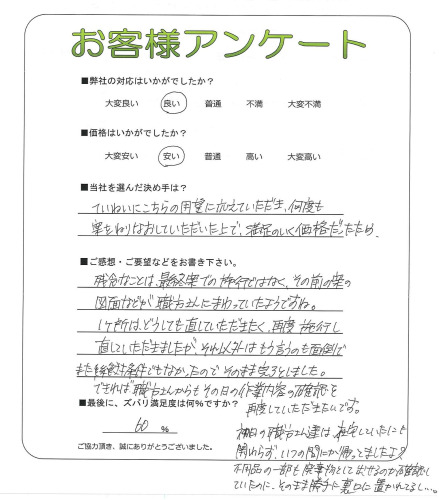 お客様アンケート
■弊社の対応はいかがでしたか?
大変良い 良い 普通 不満 大変不満
■価格はいかがでしたか?
大変安い 安い 普通 高い 大変高い
■当社を選んだ決め手は?
ていねいにこちらの用望に応えていただき、何度も
案をねりなおしていただいた上で、満足のいく価格だったため、
■ご感想・ご要望などをお書き下さい。
残念なことは、最終案での施行ではなく、その前の案の
図面などが職方さんにまわっていたようですね。
1ヶ所は、どうしても直していただきたく、再度施行し
直していただきましたが、それ以外はもう言うのも面倒で
また絶対条件でもなかったのでそのまま完了としました。
できれば職方さんからもその日の作業内容の確認を
再度していただきたいです。
■最後に、ズバリ満足度は何%ですか?
60 %
ご協力頂き、誠にありがとうございました。
初日の職方さん達は、在宅していたにも
関わらず、いつの間にか帰ってましたよ
不用品の一部も廃棄物として出せるのか確認
していたのに、そのまま勝手に裏口に置かれてるし…。